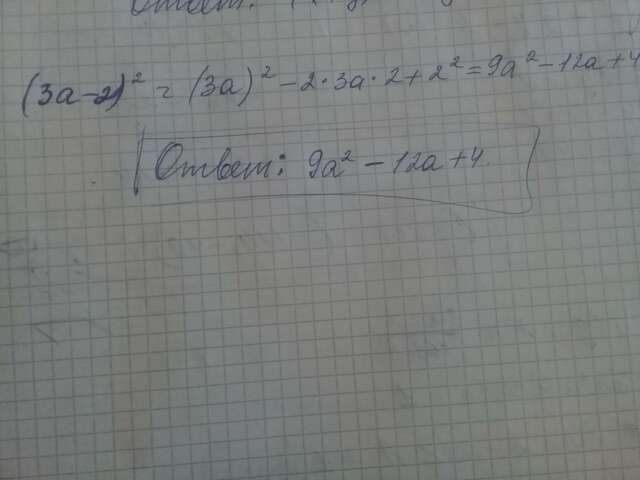 Ответ:
(3a-2)² = (3a)² - 2·3a·2+2² = 9a² - 12a + 4
Ответ: 9a² - 12a + 4